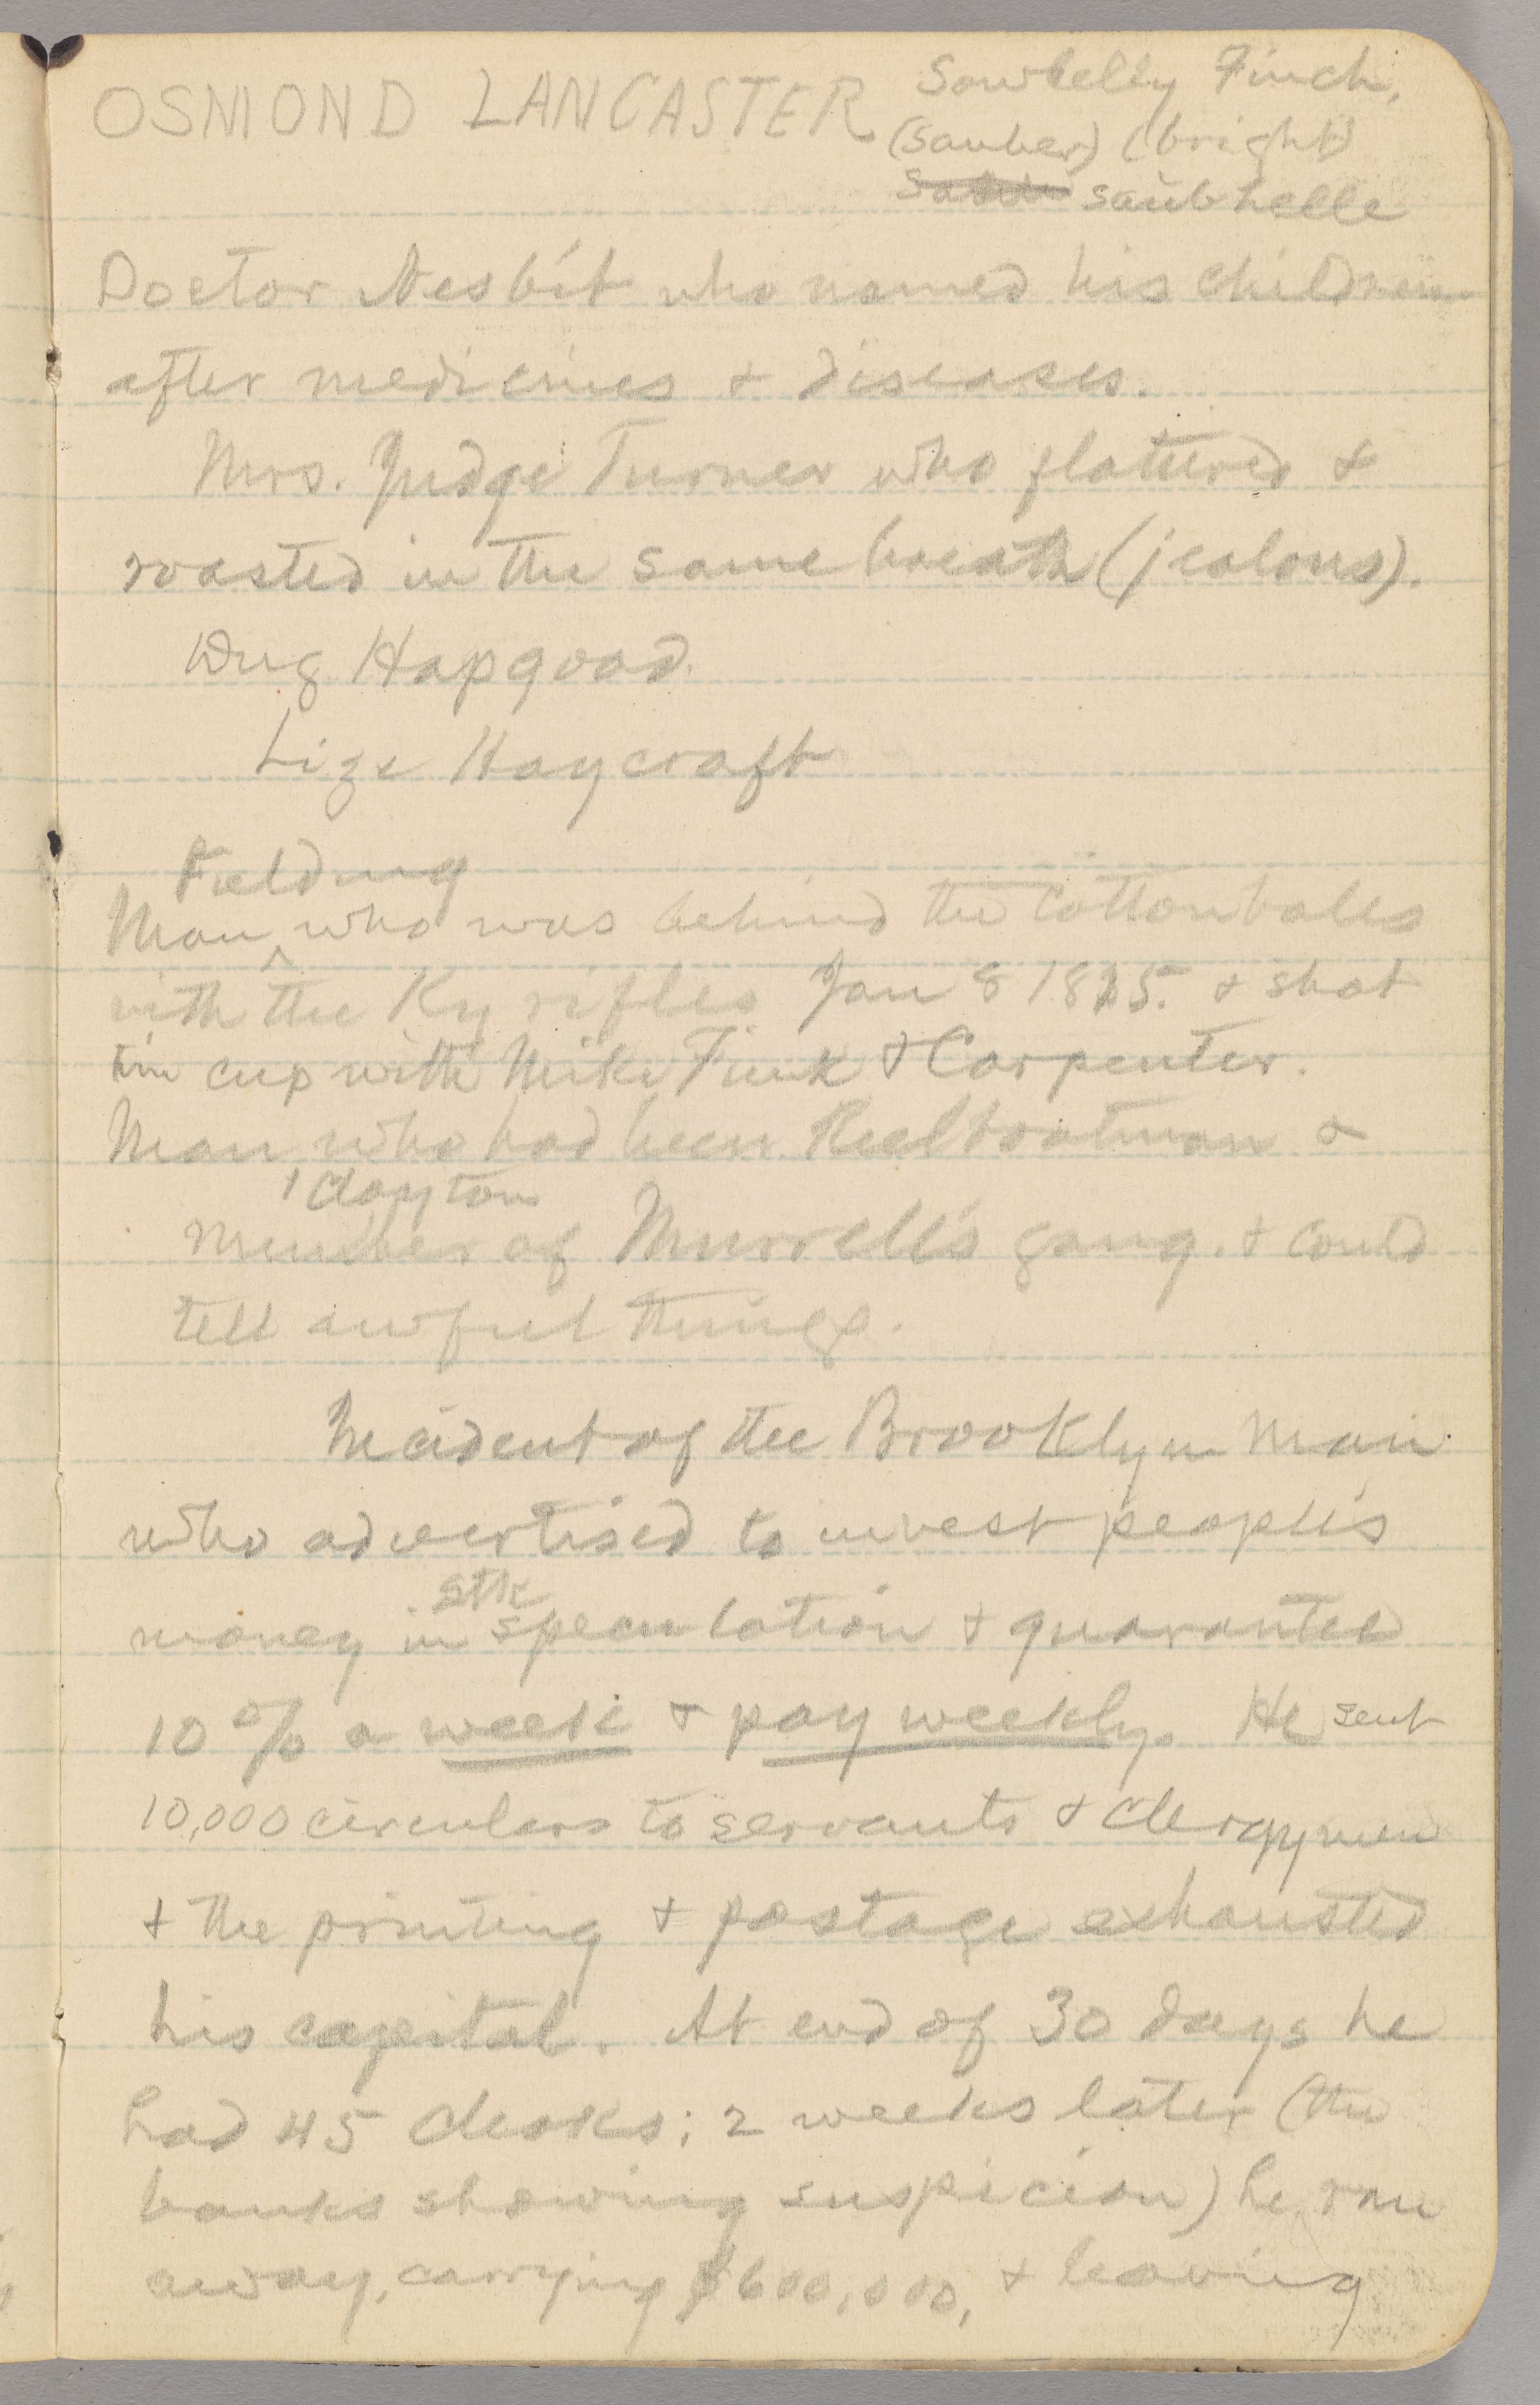 OSMOND LANCASTER
Sowbelly Finch.
(sauber) (bright)
saubhelle
Doctor Nesbit who named his children
after medicines & diseases.
Mrs. Judge Turner who flattered &
roasted in the same breath (jealous).
Wug Hapgood.
Lige Haycraft
Fielding
Man ^ who was behind the cotton bales
with the Ky rifles Jan 8 1815. & shot
tin cup with Mike Fink & Carpenter.
Man who had been Keelboatman &
Clayton
member of Murrell's gang. & could
tell awful things.
Incident of the Brooklyn man
who advertised to invest people's
stk
money in speculation & guarantee
10 % a week & pay weekly. He sent
10,000 circulars to servants & clergymen
& the printing & postage exhausted
his capital. At end of 30 days he
had 45 clerks; 2 weeks later (the
banks showing suspicion) he ran
away, carrying $600,000, & leaving